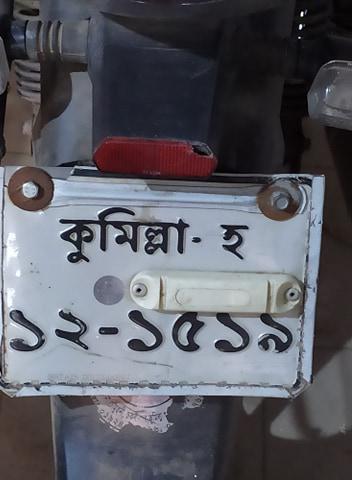 কুমিল্লা- হ
১২-১৫১৯